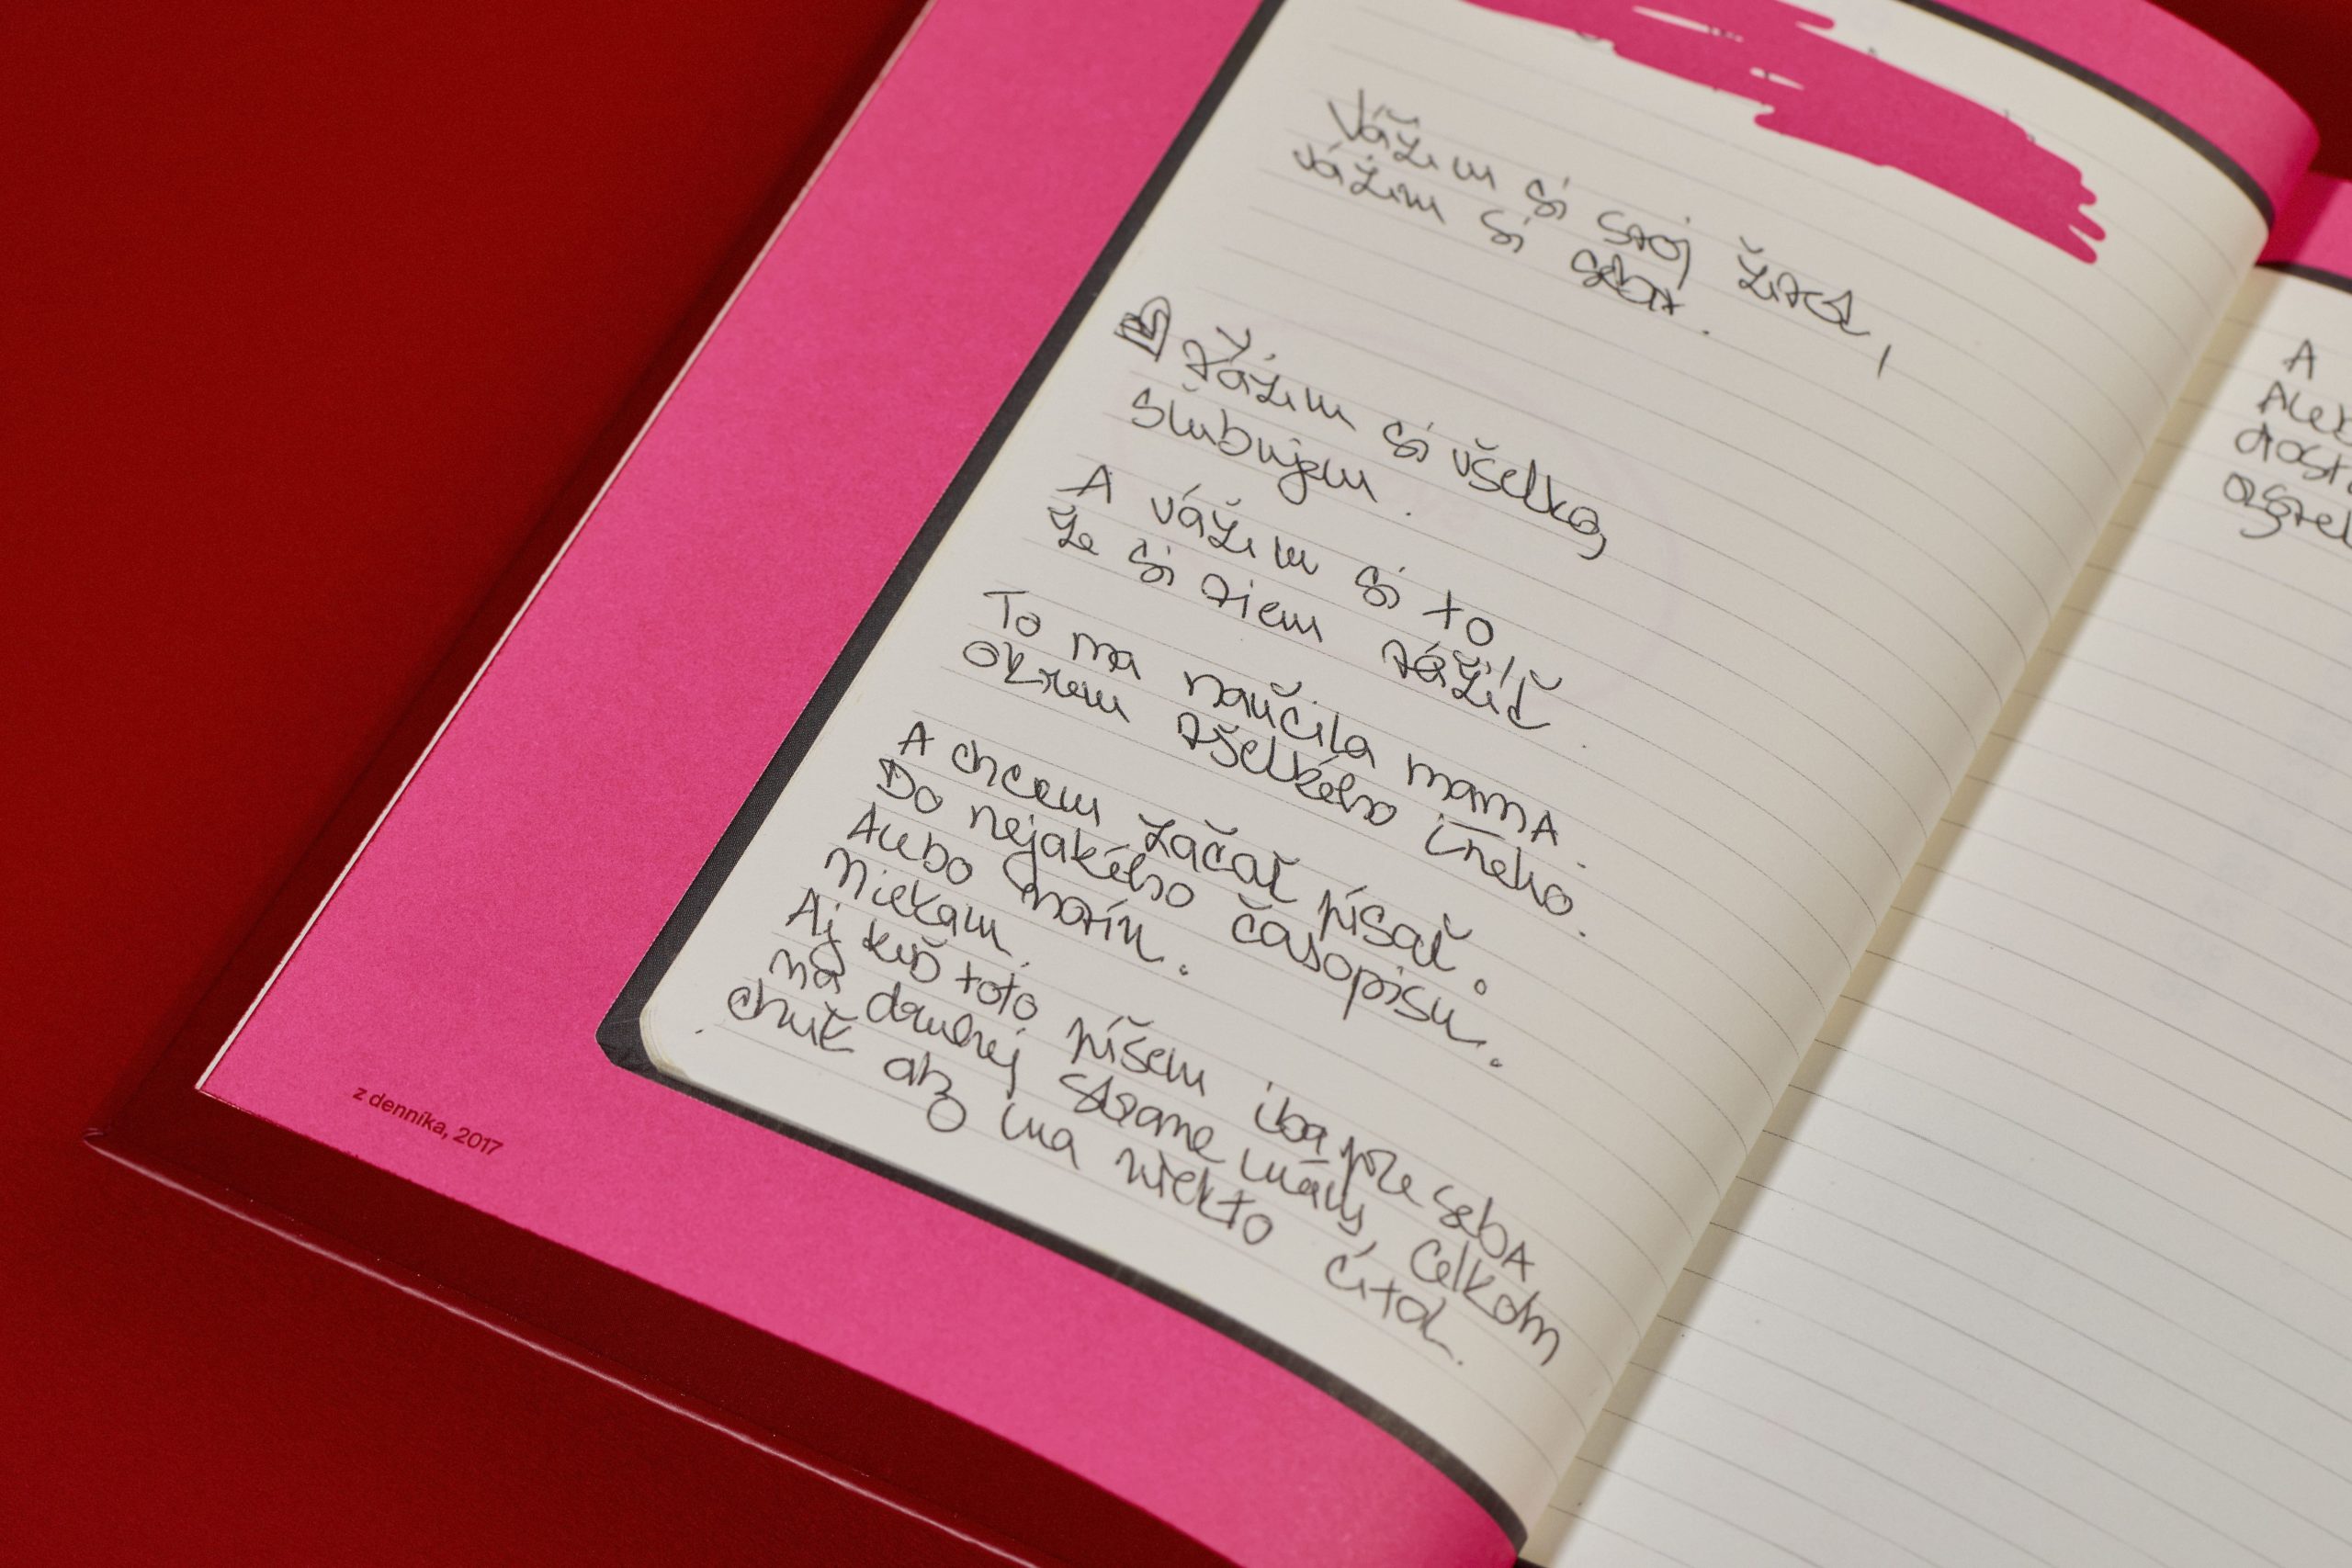 Vážim si svoj život,
vážim si seba.
Vážim si všetko,
sľubujem.
A vážim si to
že si viem vážiť.
To ma naučila mama.
okrem všelkého iného.
A chcem začať písať.
Do nejakého časopisu.
Alebo novín.
Niekam.
Aj keď toto píšem iba pre seba
na druhej strane mám, celkom
chuť aby ma niekto čítal.
z denníka, 2017
A